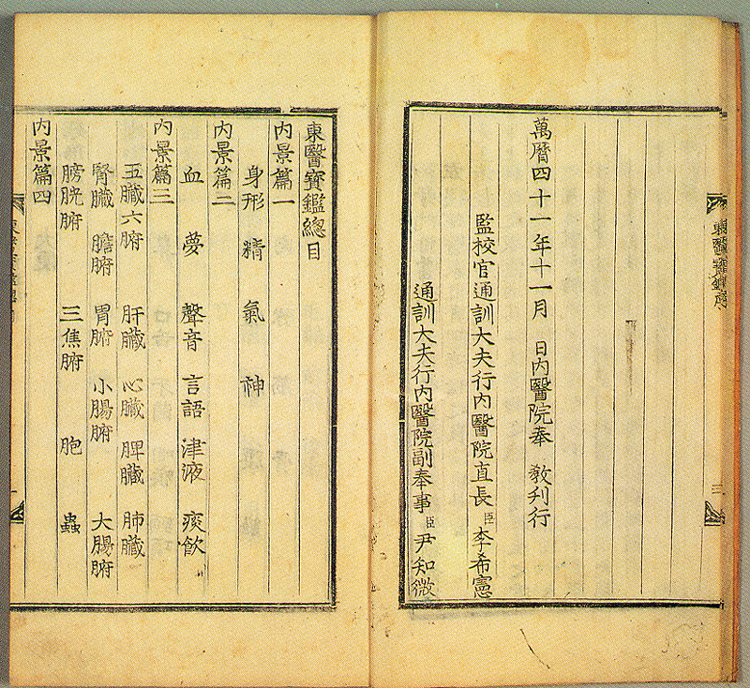 萬曆四十一年十一月 日內醫院奉 敎刊行
監校官通訓大夫行內醫院直長臣李希憲
通訓大夫行內醫院副奉事臣尹知微
東醫寶鑑序
三
東醫寶鑑總目
內景篇一
身形 精 氣 神
內景篇二
血 夢 聲音 言語 津液 痰飮
內景篇三
五臟六腑 肝臟 心臟 脾臟 肺臟
腎臟 膽腑 胃腑 小腸腑 大腸腑
膀胱腑 三焦腑 胞 蟲
內景篇四